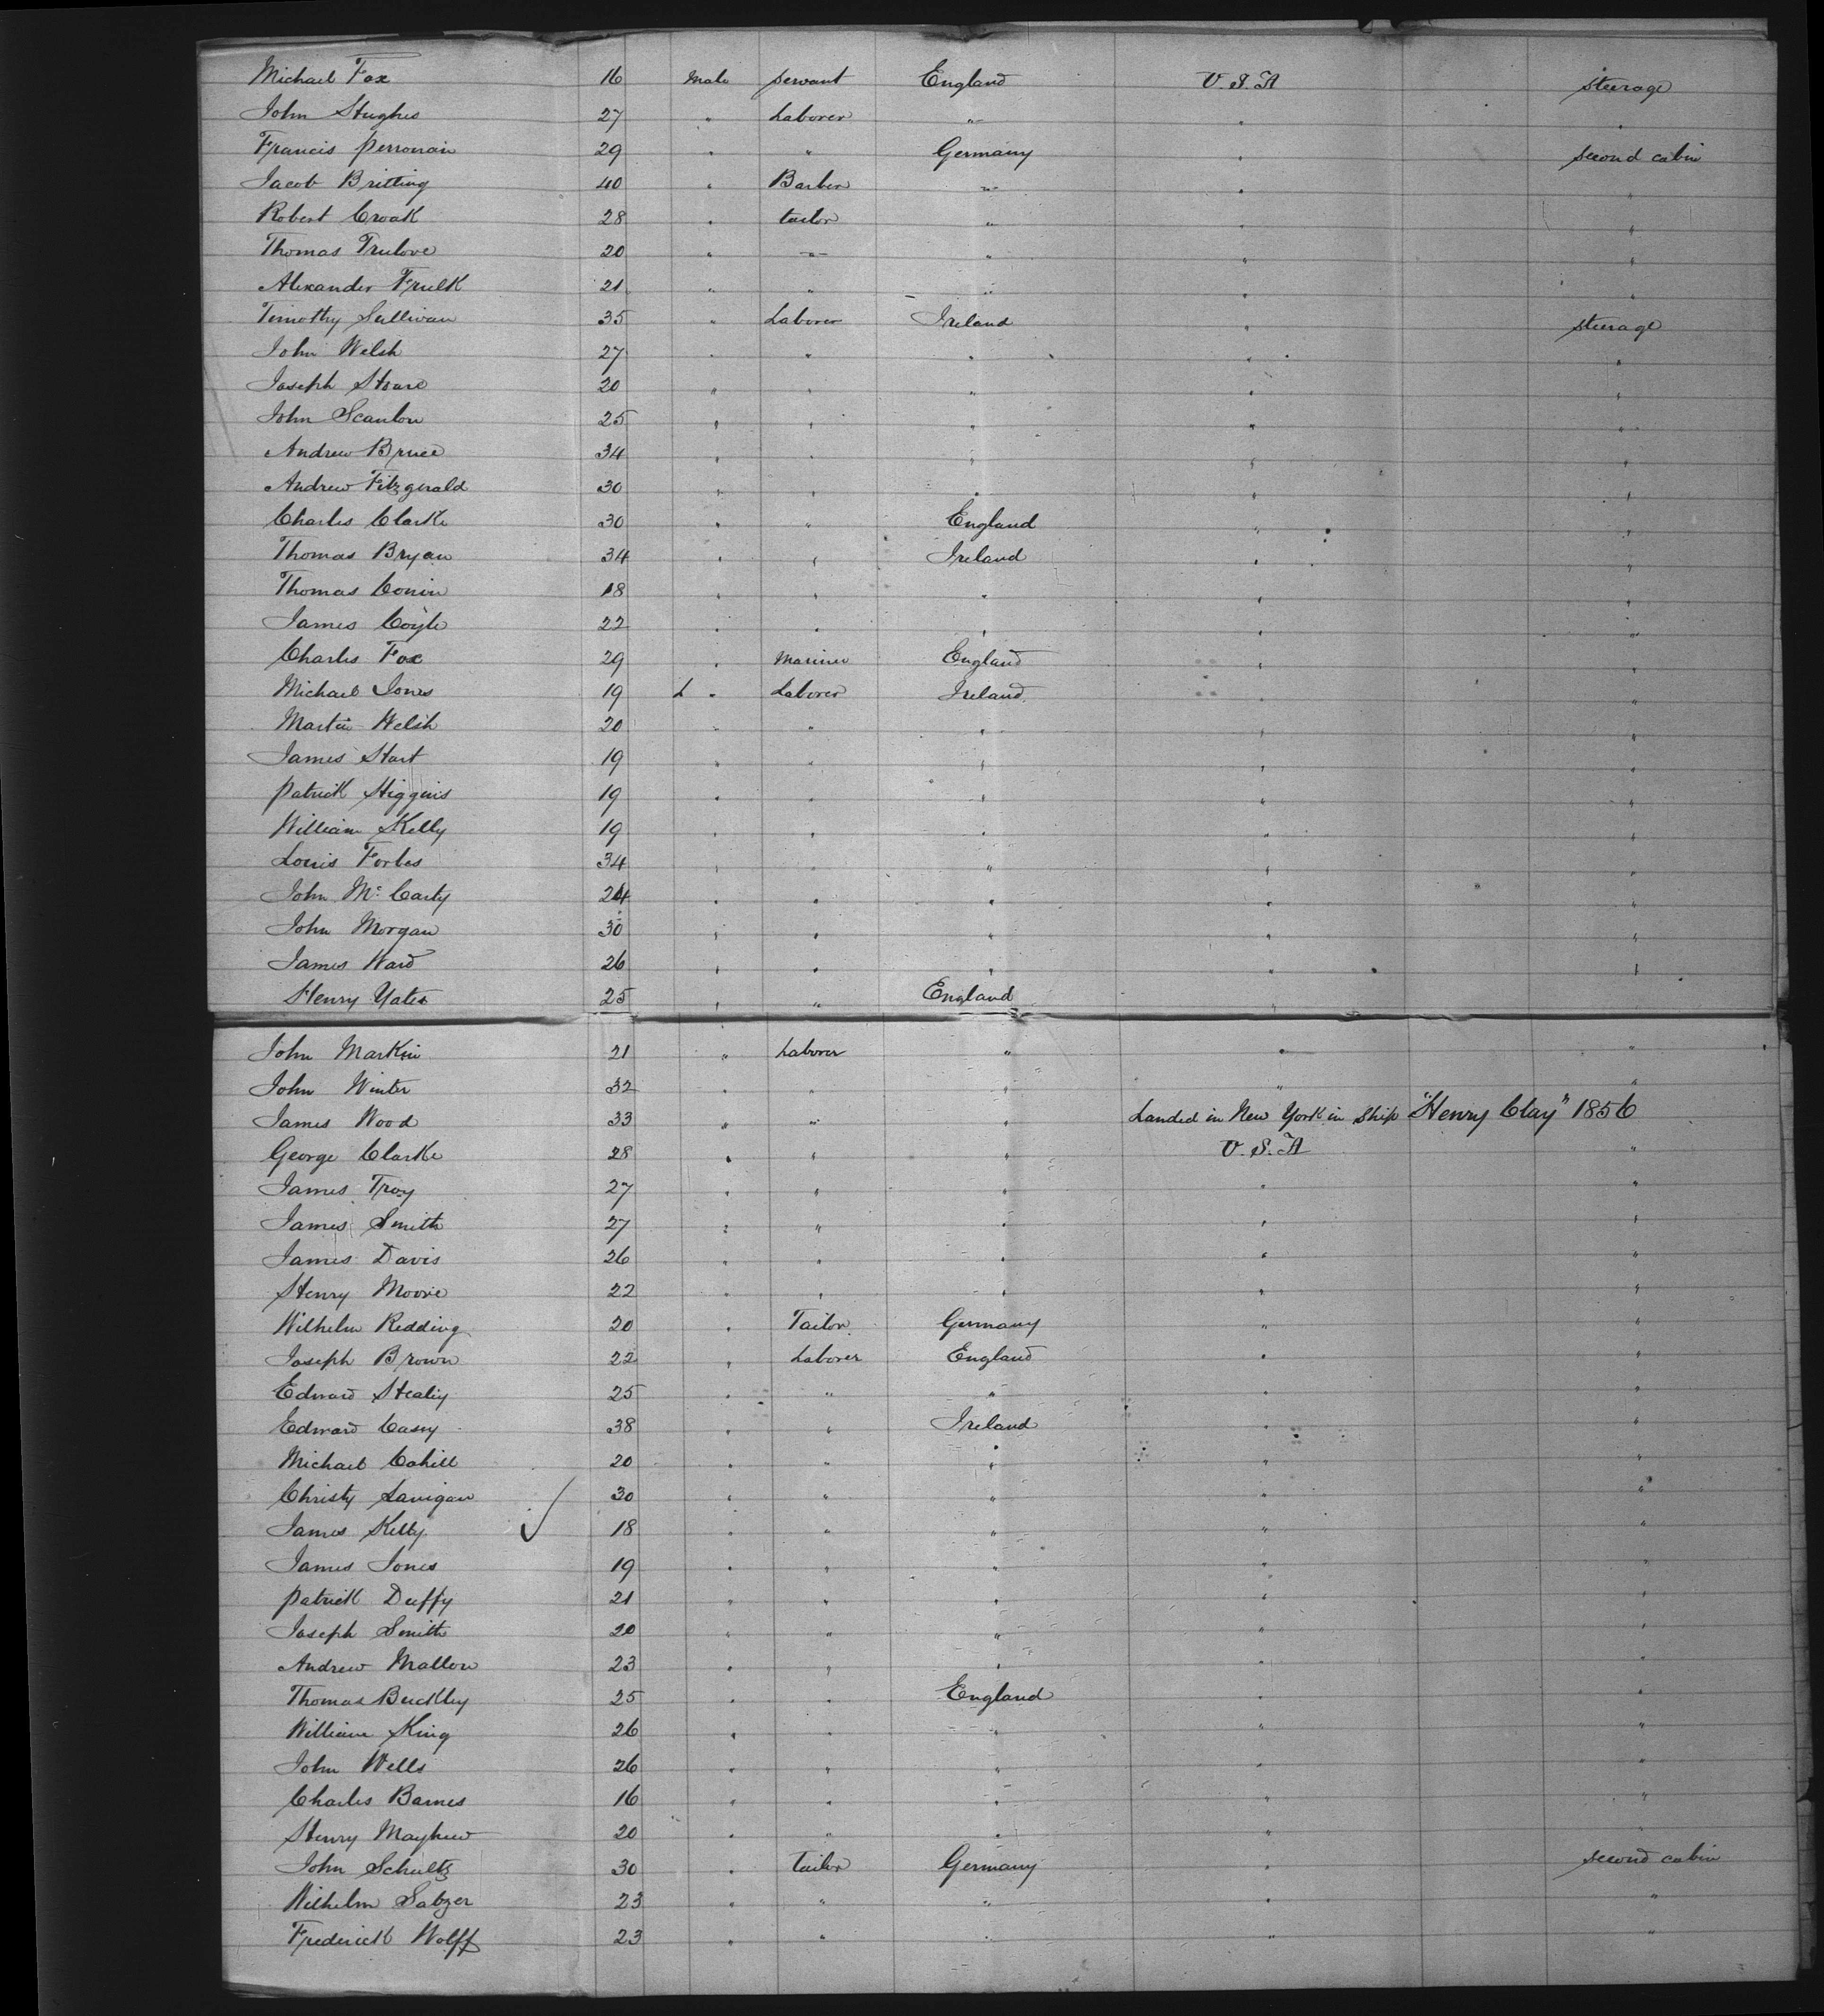 Michael Fox 16 Male servant England U.S.A steerage
John Hughes 27 " Laborer " " "
Francis 29 " " Germany " second cabin
Jacob Britting 40 " Barber " " "
Robert Croak 28 " tailor " " "
Thomas Trulove 20 " " " " "
Alexander Frulk 21 " " " " "
Timothy Sullivan 35 " Laborer Ireland " steerage
John Welsh 27 " " " " "
Joseph 20 " " " " "
John Scanlon 25 " " " " "
Andrew Bruce 34 " " " " "
Andrew Fitzgerald 30 " " " " "
Charles Clarke 30 " " England " "
Thomas Bryan 34 " " Ireland " "
Thomas Conin 18 " " " " "
James Coyle 22 " " " " "
Charles Fox 29 " Mariner England " "
Michael Jones 19 L " Laborer Ireland " "
Martin Welsh 20 " " " " "
James Hart 19 " " " " "
Patrick Higgins 19 " " " " "
William Kelly 19 " " " " "
Louis Forbes 34 " " " " "
John McCarty 24 " " " " "
John Morgan 30 " " " " "
James Ward 26 " " " " "
Henry Yates 25 " " England " "
John Markin 21 " Laborer " " "
John Winter 32 " " " " "
James Wood 33 " " " Landed in New York in Ship "Henry Clay" 1856
George Clarke 28 " " " U.S.A "
James Troy 27 " " " " "
James Smith 27 " " " " "
James Davis 26 " " " " "
Henry Moore 22 " " " " "
Wilhelm Redding 20 " Tailor Germany " "
Joseph Brown 22 " Laborer England " "
Edward Healiy 25 " " " " "
Edward Casey 38 " " Ireland " "
Michael Cahill 20 " " " " "
Christy Lanigan 30 " " " " "
James Kelly ✓ 18 " " " " "
James Jones 19 " " " " "
Patrick Duffy 21 " " " " "
Joseph Smith 20 " " " " "
Andrew Mallon 23 " " " " "
Thomas Buckley 25 " " England " "
William King 26 " " " " "
John Wells 26 " " " " "
Charles Barnes 16 " " " " "
Henry Mayhew 20 " " " " "
John Schultz 30 " tailor Germany " second cabin
Wilhelm Salzer 23 " " " " "
Frederick Wolff 23 " " " " "